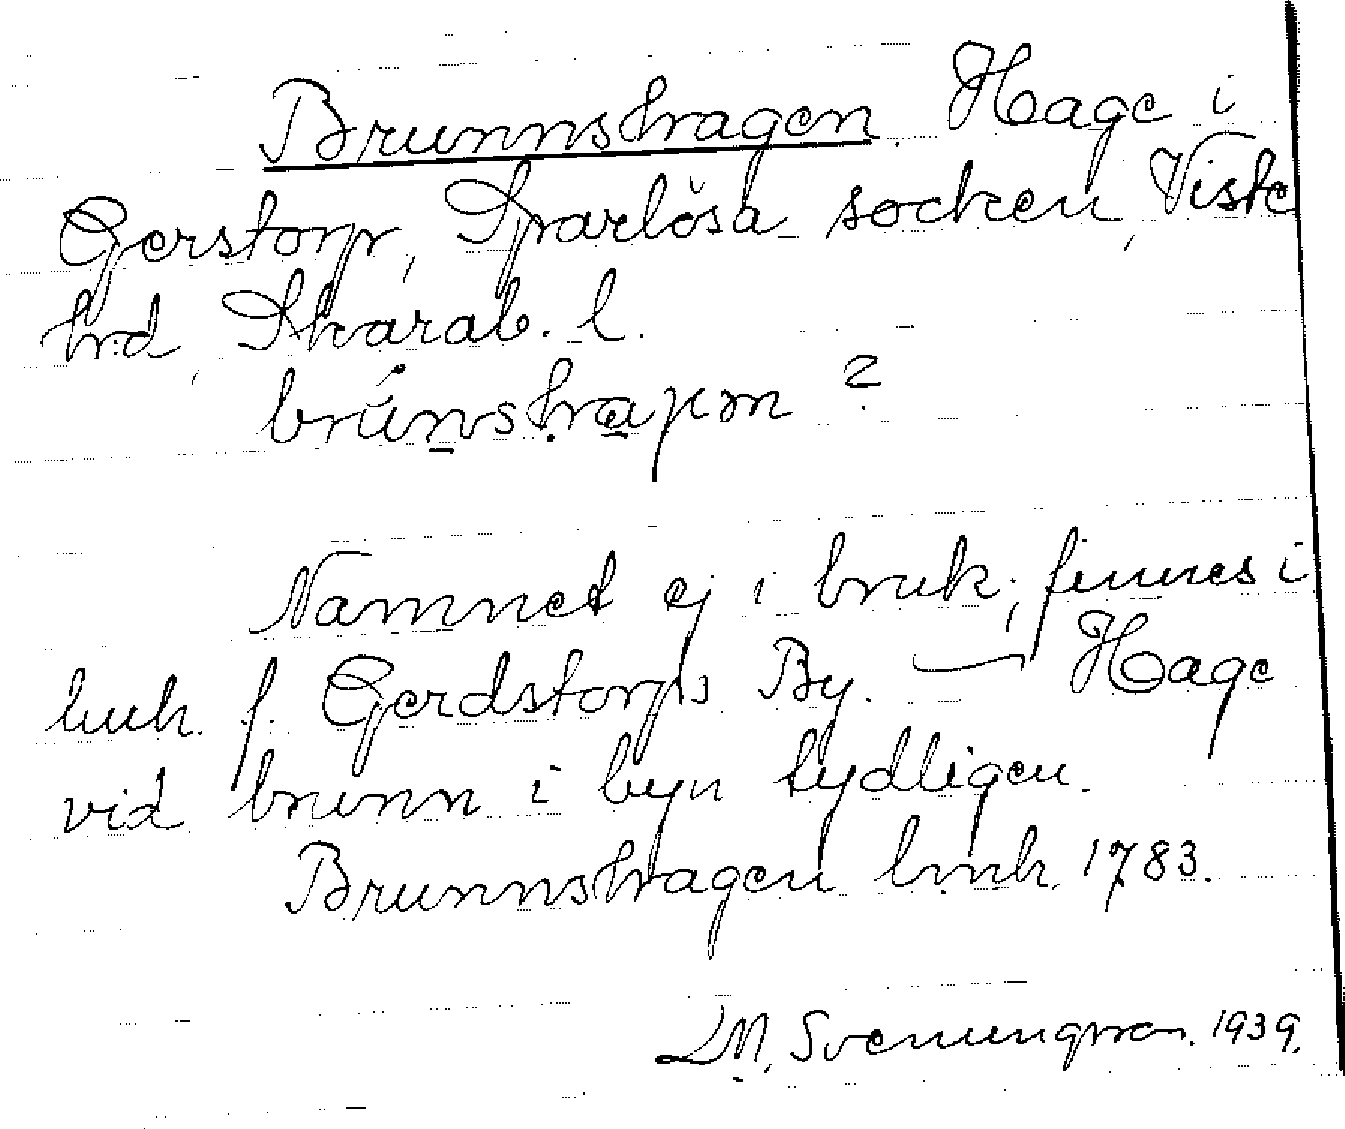 Brunnshagen Hage i
Gerstorp, Sparlösa socken, Viste
hrd, Skarab. l.
Namnet ej i bruk; finnes i
lmh. f. Gerdstorps By. — Hage
vid brunn i byn tydligen.
Brunnshagen lmh. 1783.
LM. Svenungsson. 1939.